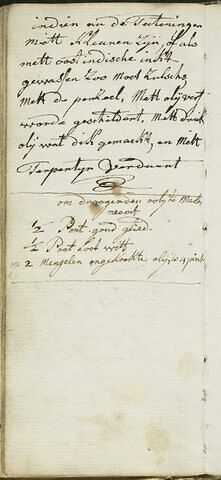 indien nu de Teekeningen
mett kleuren zijn, Als
mett oostindische inkt
gewassen zoo moet zulcks
Mett de penseel, Mett olijverf
worde geschildert, Mett druk
olij wat dik gemackt, en Mett
Terpentyn verdunt
om droogenden oolij te Maken
neemt
1/2 Pont goud glied.
1/2 Pont Loot witt
op 2 mengelen ongekookte olij, is 4 pint